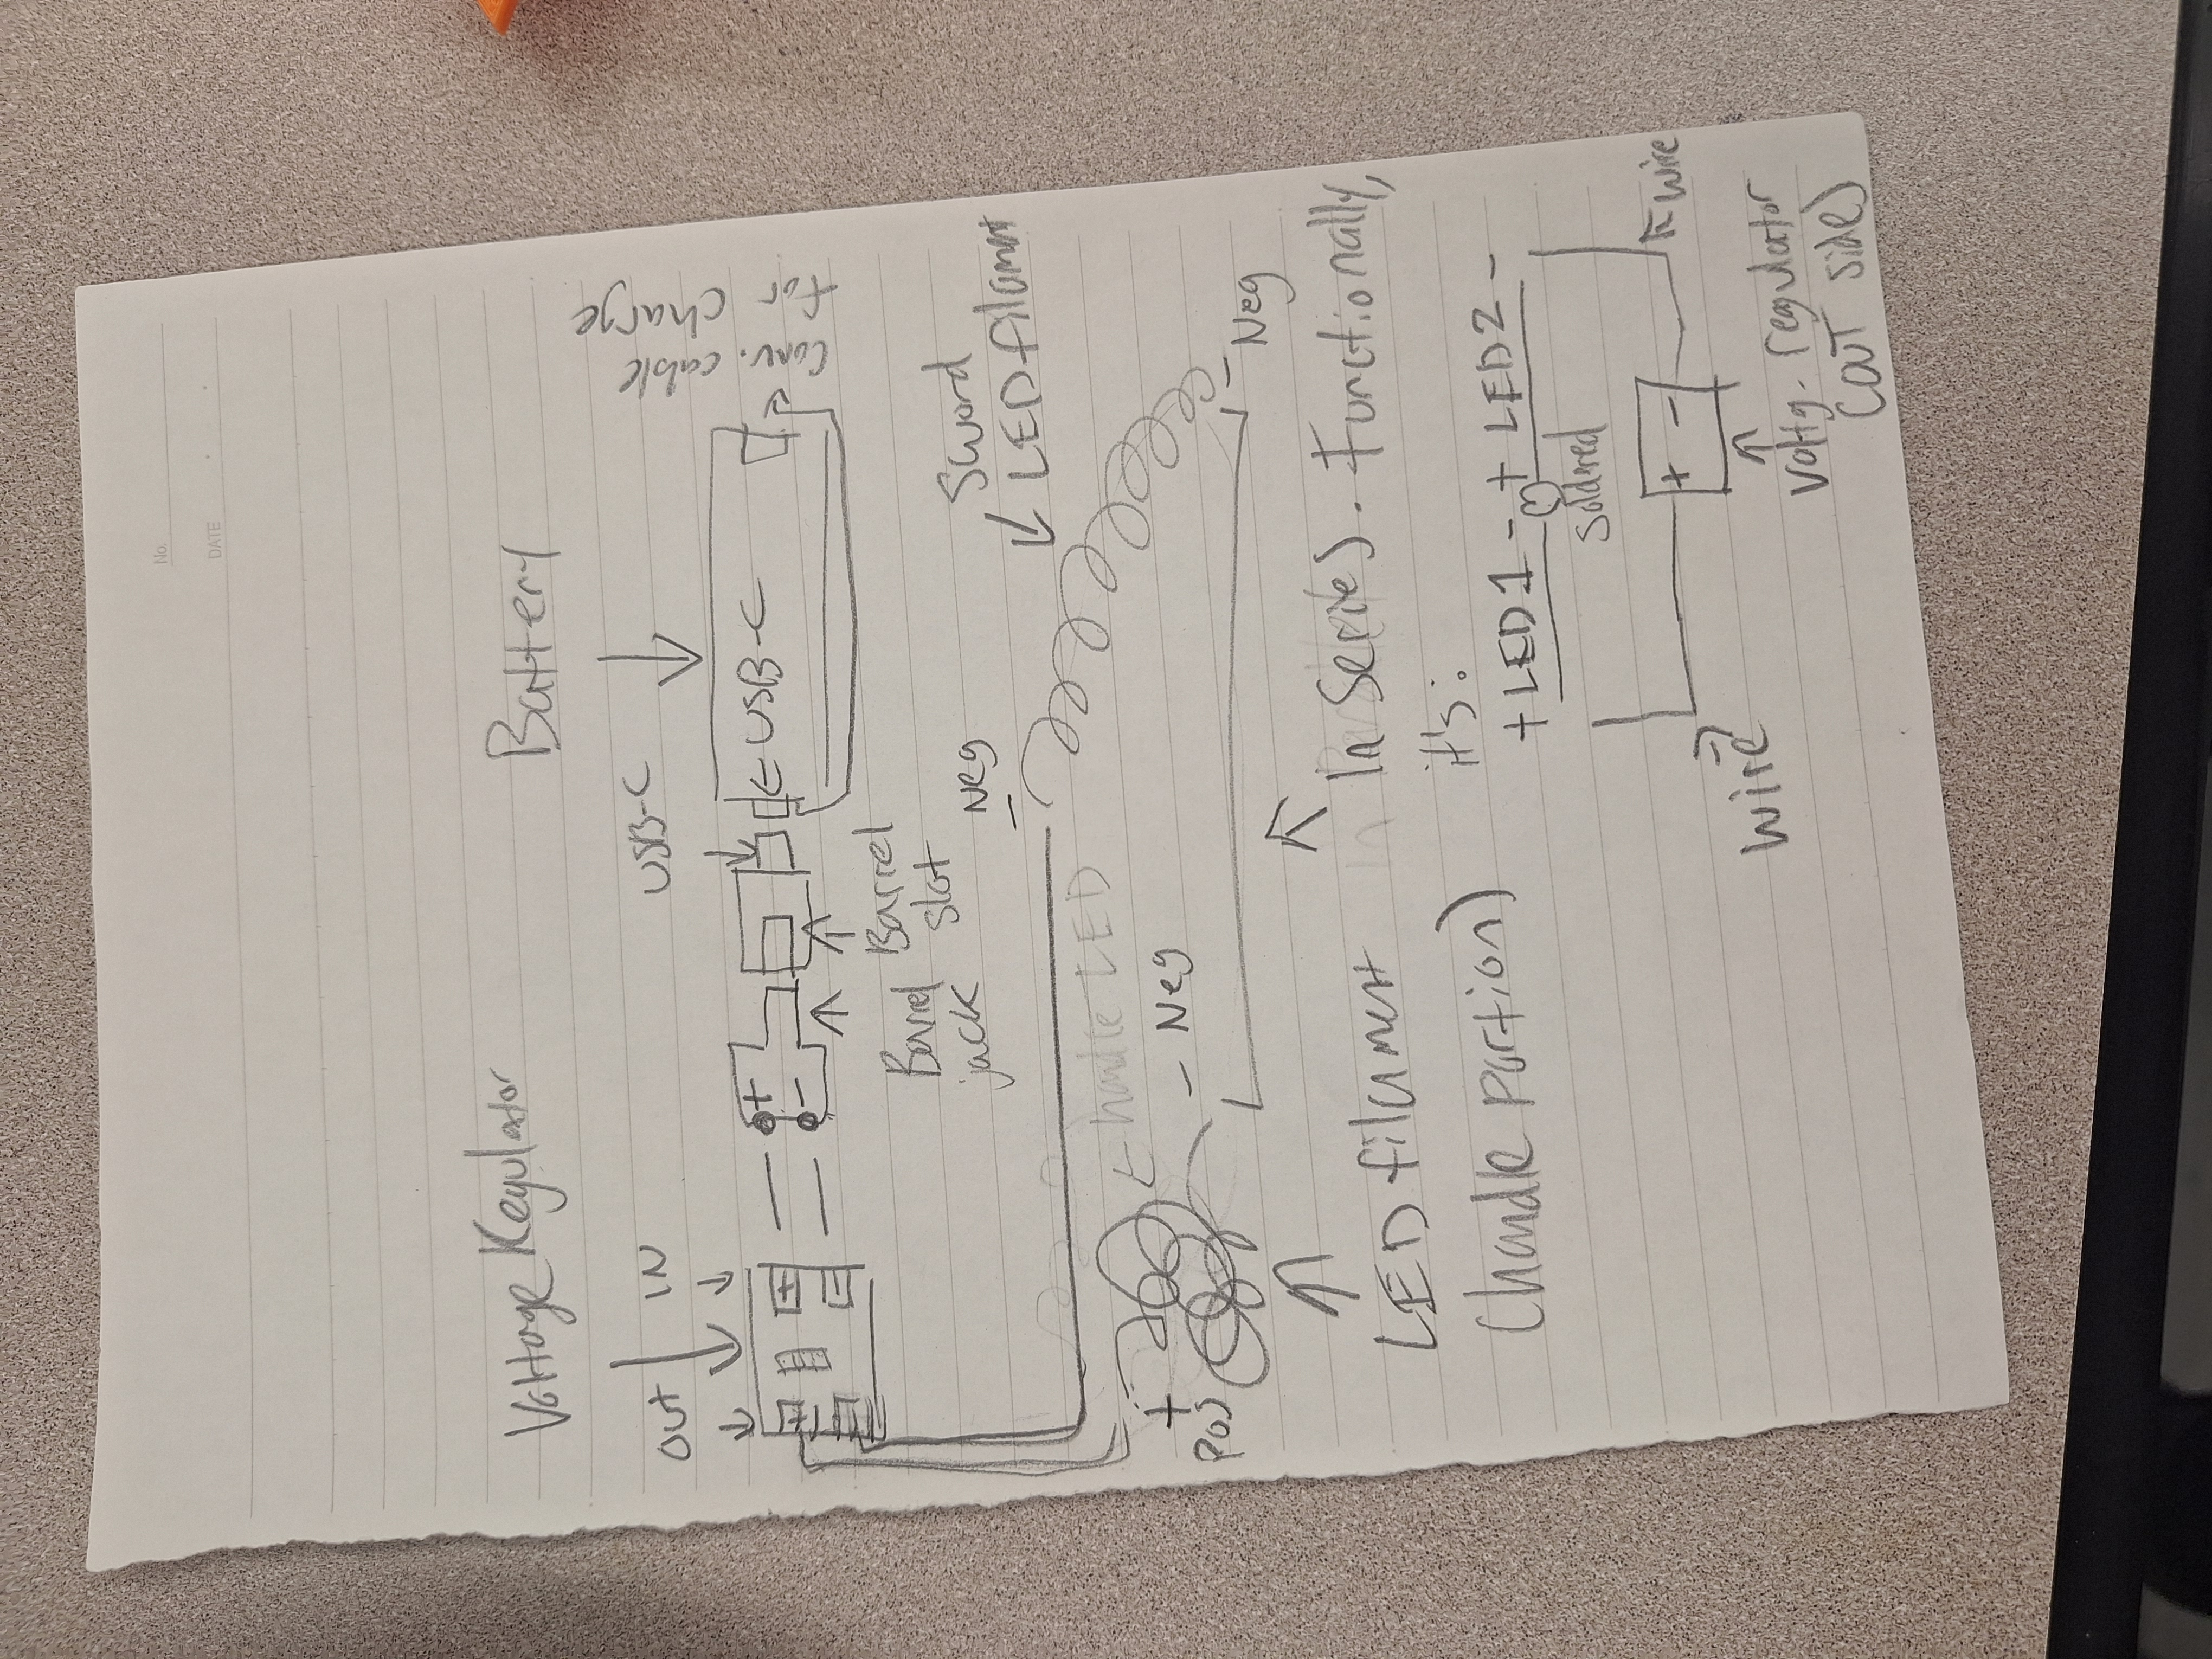 No.
DATE
Voltage Regulator
Battery
OUT
IN
USB-C
conv. cable
for charge
+
-
← USB-C
+
-
+
-
Barrel
jack
Barrel
slot
- Neg
Sword
LED filament
← handle LED
+
Pos
- Neg
- Neg
LED filament
(handle portion)
in Series). Functionally,
it's:
+ LED1 - + LED2 -
soldered
wire
wire
+ -
Voltg. regulator
(OUT side)